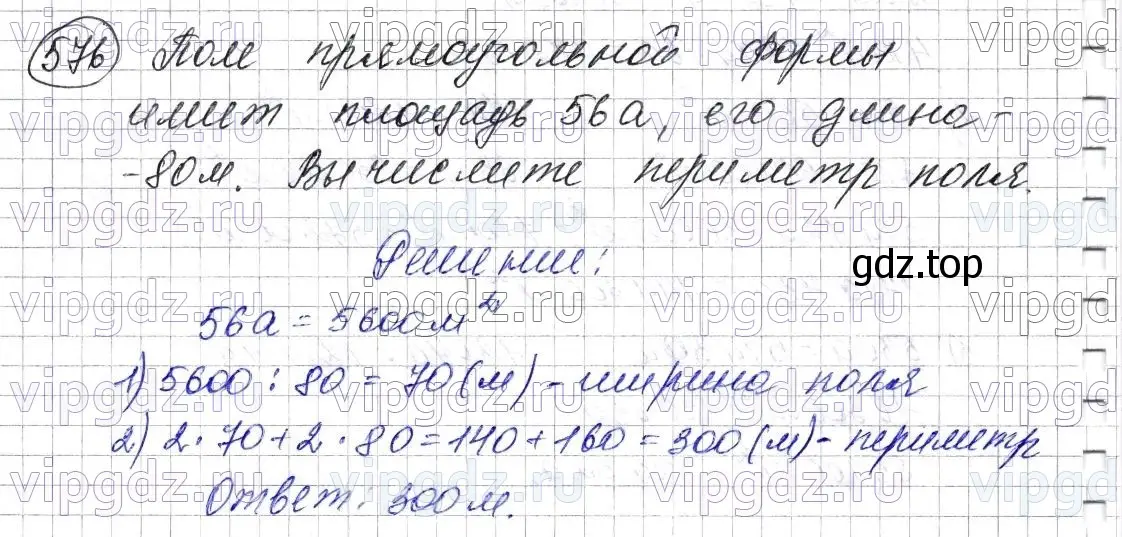 576 Поле прямоугольной формы
имеет площадь 56а, его длина -
- 80м. Вычислите периметр поля.
Решение:
gdz.top
56а = 5600м²
1) 5600 : 80 = 70 (м) - ширина поля
2) 2 · 70 + 2 · 80 = 140 + 160 = 300 (м) - периметр
Ответ: 300м.
vipgdz.ru